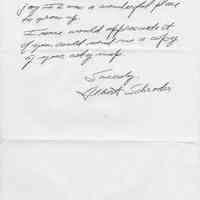 was a wonderful place
to grow up.
I sure would appreciate it
if you would send me a copy
of your city map.
Sincerely
Albert